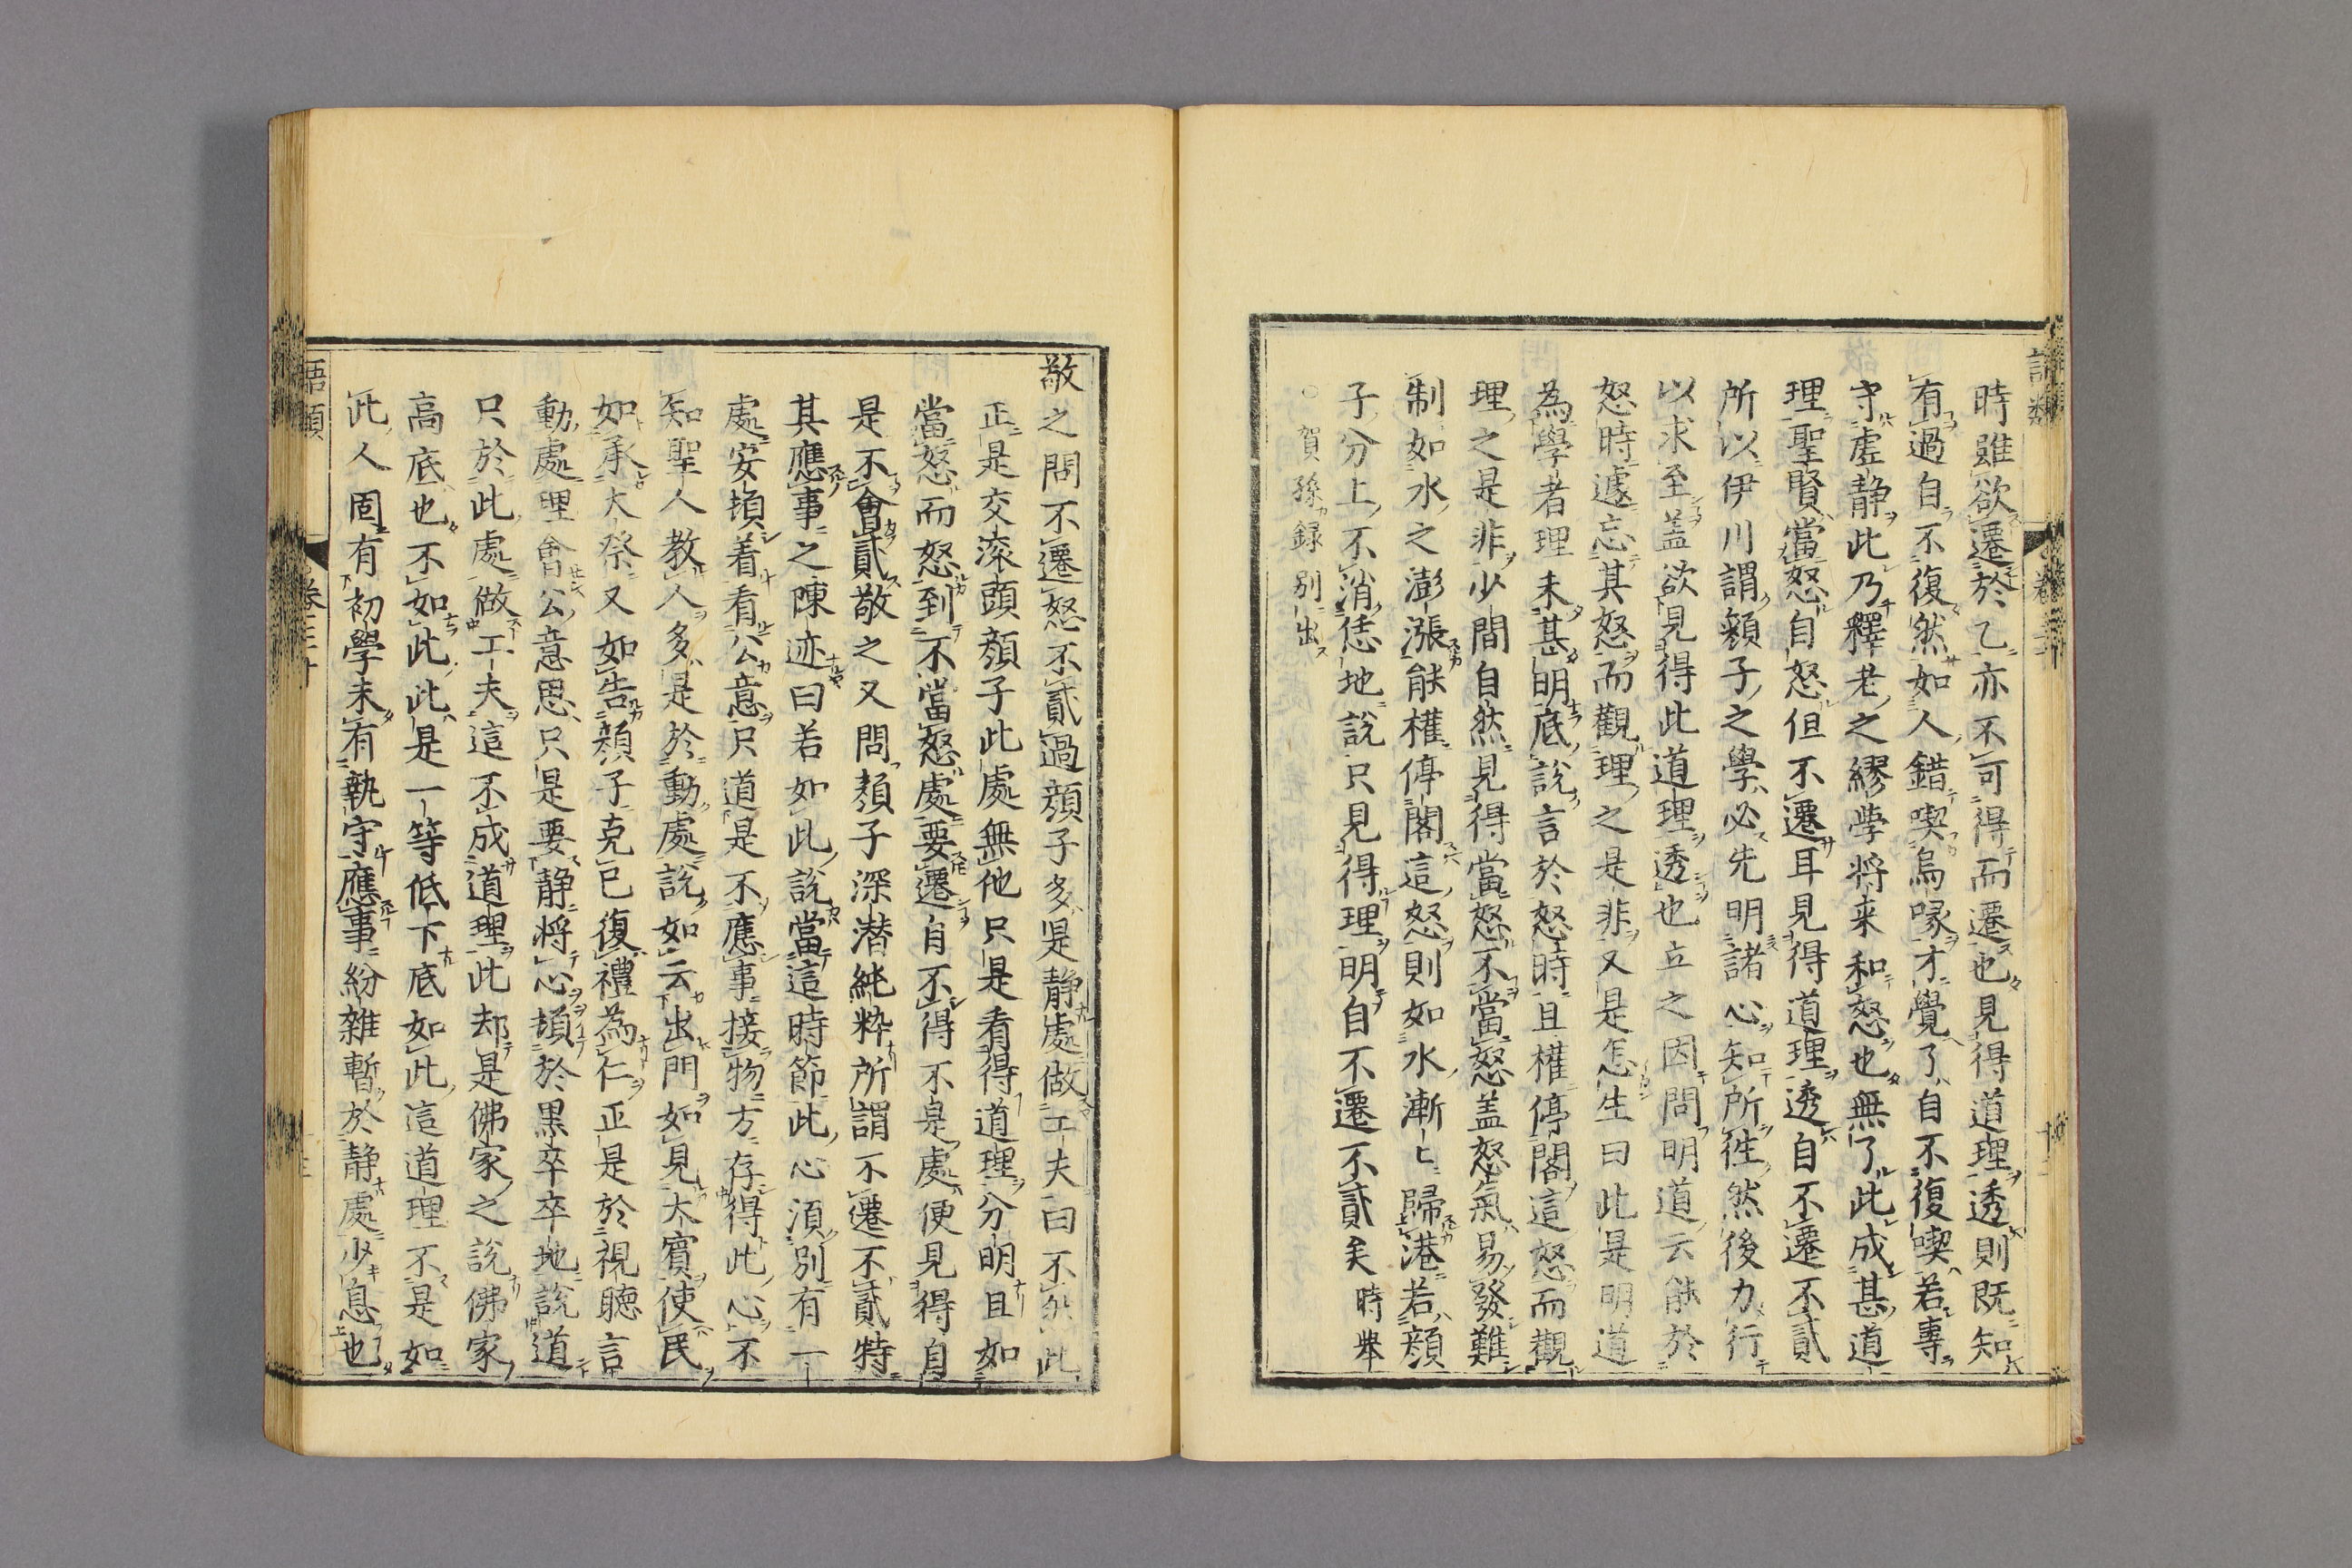 時雖欲遷於乙亦不可得而遷也見得道理透則既知
有過自不復然如人錯喫烏喙才覺了自不復喫若專
守虛静此乃釋老之繆學将来和怒也無了此成甚道
理聖賢當怒自怒但不遷耳見得道理透自不遷不貳
所以伊川謂顏子之學必先明諸心知所徃然後力行
以求至盖欲見得此道理透也立之因問明道云能於
怒時遽忘其怒而觀理之是非又是怎生曰此是明道
為學者理未甚明底說言於怒時且權停閣這怒而觀
理之是非少間自然見得當怒不當怒盖怒氣易發難
制如水之澎漲能權停閣這怒則如水漸〻歸港若顏
子分上不消恁地說只見得理明自不遷不貳矣時舉
○賀孫録別出
敬之問不遷怒不貳過顏子多是静處做工夫曰不然此
正是交滚頭顏子此處無他只是看得道理分明且如
當怒而怒到不當怒處要遷自不得不是處便見得自
是不會貳敬之又問顏子深潜純粋所謂不遷不貳特
其應事之陳迹曰若如此說當這時節此心須別有一
處安頓着看公意只道是不應事接物方存得此心不
知聖人教人多是於動處說如云出門如見大賓使民
如承大祭又如告顏子克已復禮為仁正是於視聴言
動處理會公意思只是要静将心頓於黒卒卒地說道
只於此處做工夫這不成道理此却是佛家之說佛家
高底也不如此此是一等低下底如此這道理不是如
此人固有初學未有執守應事紛雜暫於静處少息也
語類